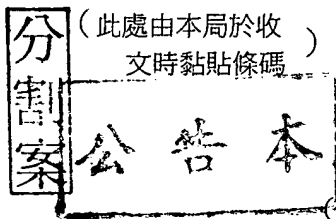 分割案
（此處由本局於收
文時黏貼條碼）
公告本